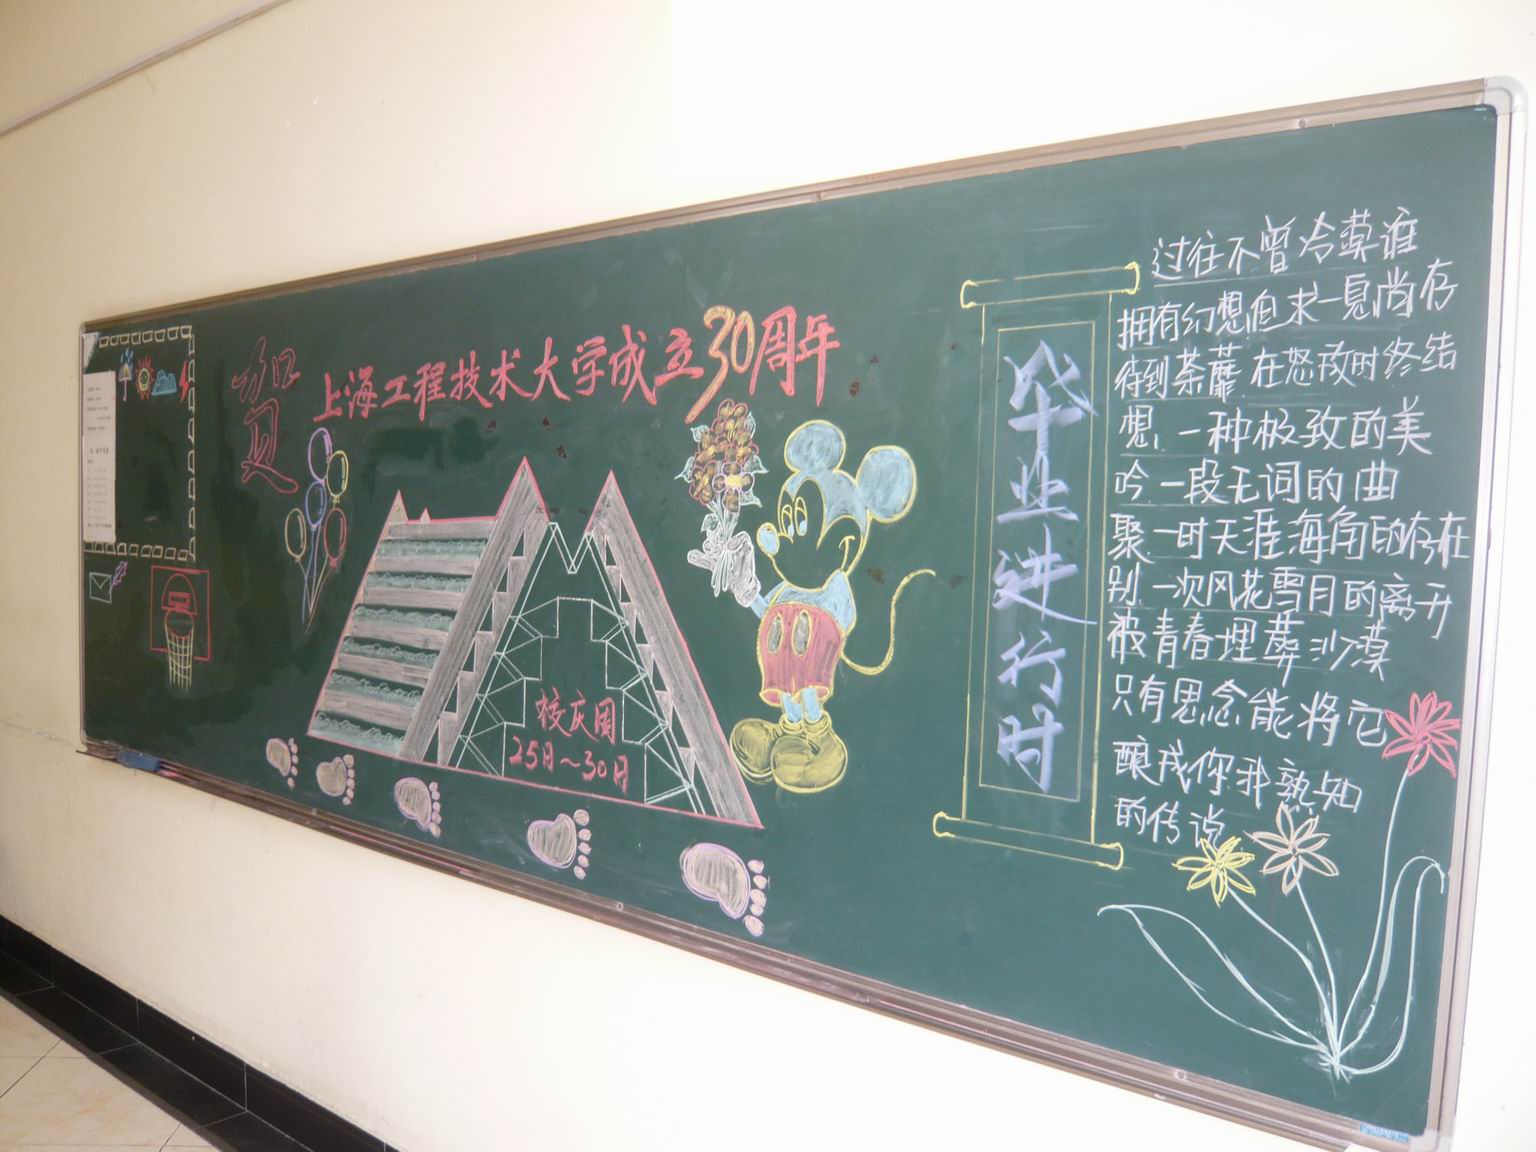 贺
上海工程技术大学成立30周年
校庆周
25日~30日
毕业进行时
过往不曾冷漠谁
拥有幻想但求一息尚存
待到荼蘼 在怒放时终结
想 一种极致的美
吟 一段无词的曲
聚 一时天涯海角的存在
别 一次风花雪月的离开
被青春埋葬沙漠
只有思念能将它
酿成你我熟知
的传说